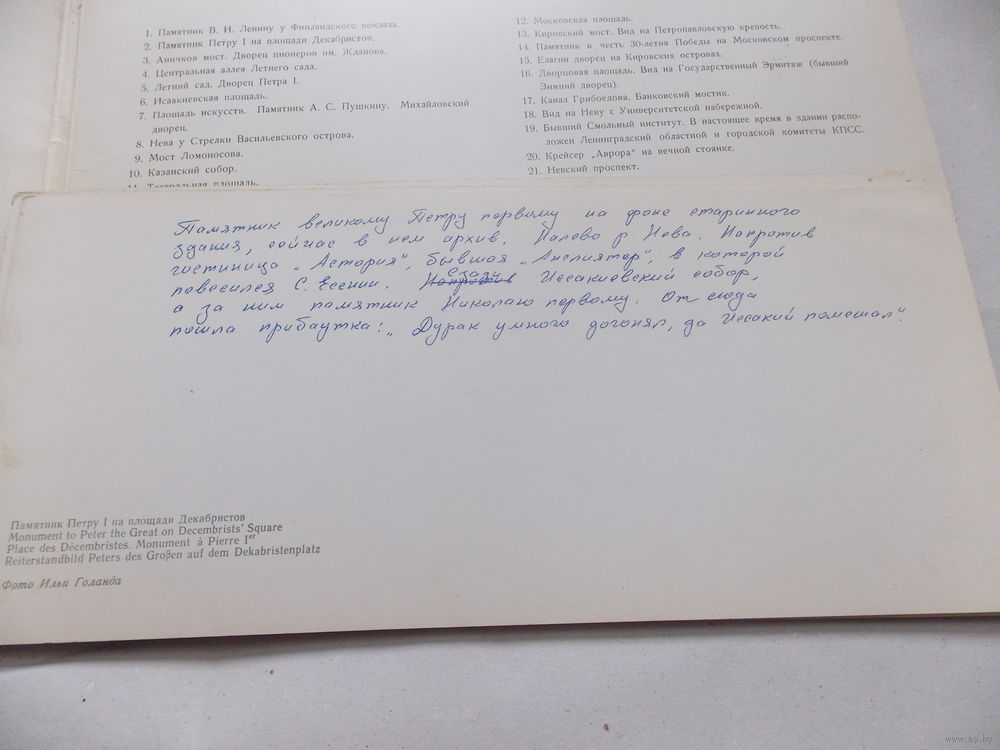 1. Памятник В. И. Ленину у Финляндского вокзала.
2. Памятник Петру I на площади Декабристов.
3. Аничков мост. Дворец пионеров им. Жданова.
4. Центральная аллея Летнего сада.
5. Летний сад. Дворец Петра I.
6. Исаакиевская площадь.
7. Площадь искусств. Памятник А. С. Пушкину. Михайловский
дворец.
8. Нева у Стрелки Васильевского острова.
9. Мост Ломоносова.
10. Казанский собор.
11. Театральная площадь.
12. Московская площадь.
13. Кировский мост. Вид на Петропавловскую крепость.
14. Памятник в честь 30-летия Победы на Московском проспекте.
15. Елагин дворец на Кировских островах.
16. Дворцовая площадь. Вид на Государственный Эрмитаж (бывший
Зимний дворец).
17. Канал Грибоедова. Банковский мостик.
18. Вид на Неву с Университетской набережной.
19. Бывший Смольный институт. В настоящее время в здании распо-
ложен Ленинградский областной и городской комитеты КПСС.
20. Крейсер „Аврора“ на вечной стоянке.
21. Невский проспект.
Памятник великому Петру первому на фоне старинного
здания, сейчас в нем архив. Налево р. Нева. Напротив
гостиница „Астория“, бывшая „Англиятер“, в которой
повесился С. Есенин. Напротив Сзади Иссакиевский собор,
а за ним памятник Николаю первому. От сюда
пошла прибаутка: „Дурак умного догонял, да Иссакий помешал“.
Памятник Петру I на площади Декабристов
Monument to Peter the Great on Decembrists' Square
Place des Décembristes. Monument à Pierre Ier
Reiterstandbild Peters des Großen auf dem Dekabristenplatz
Фото Ильи Голанда
www.ay.by